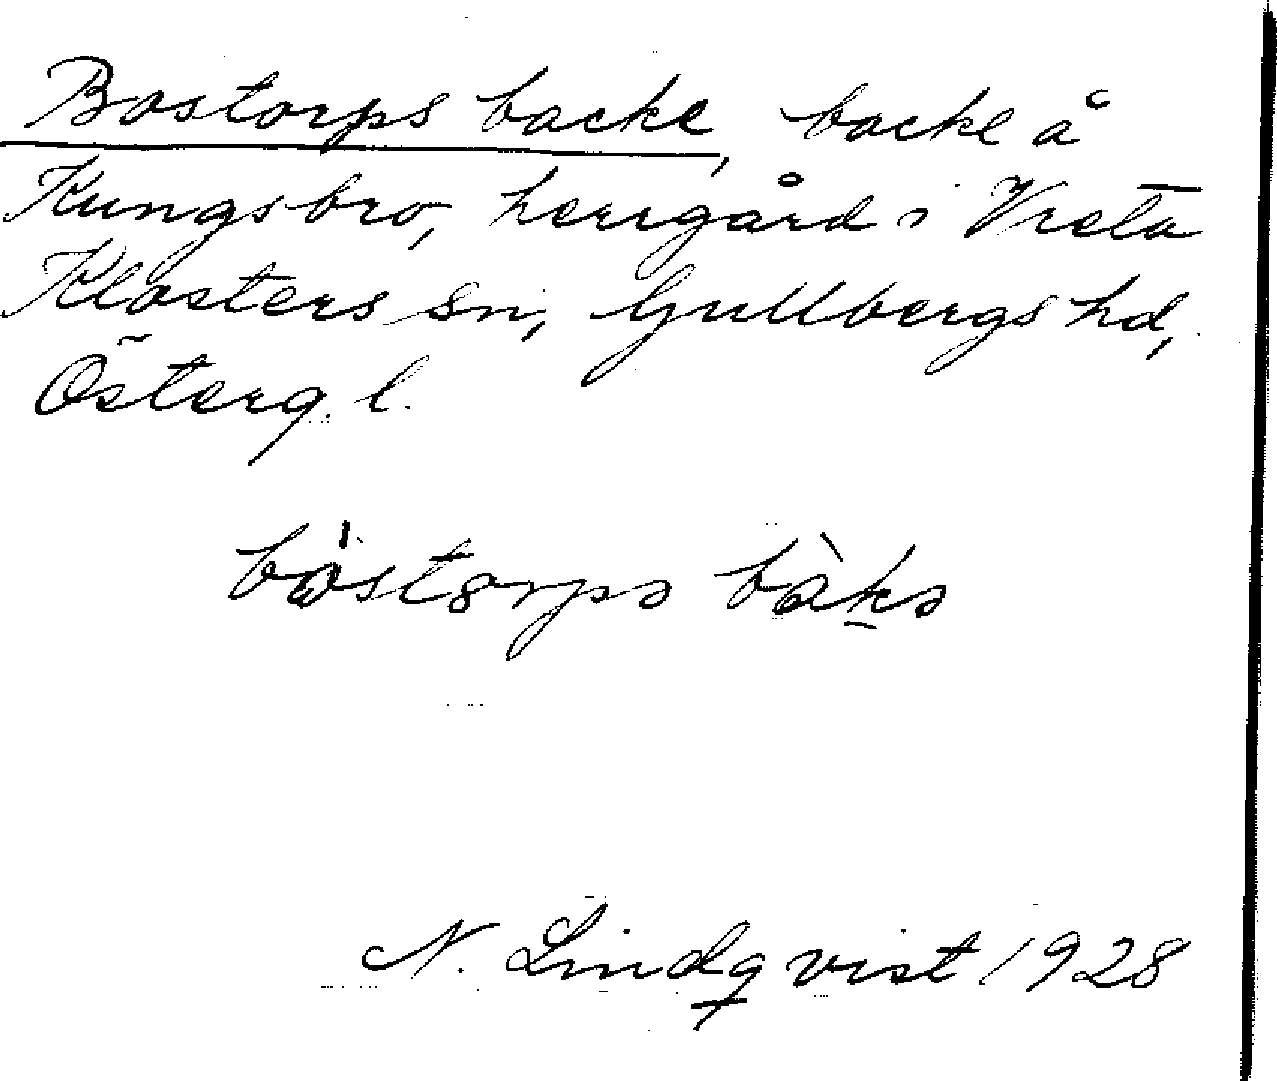 Bostorps backe, backe å
Kungsbro, herrgård i Vreta
Klosters sn, Gullbergs hd,
Österg. l.
N. Lindqvist 1928